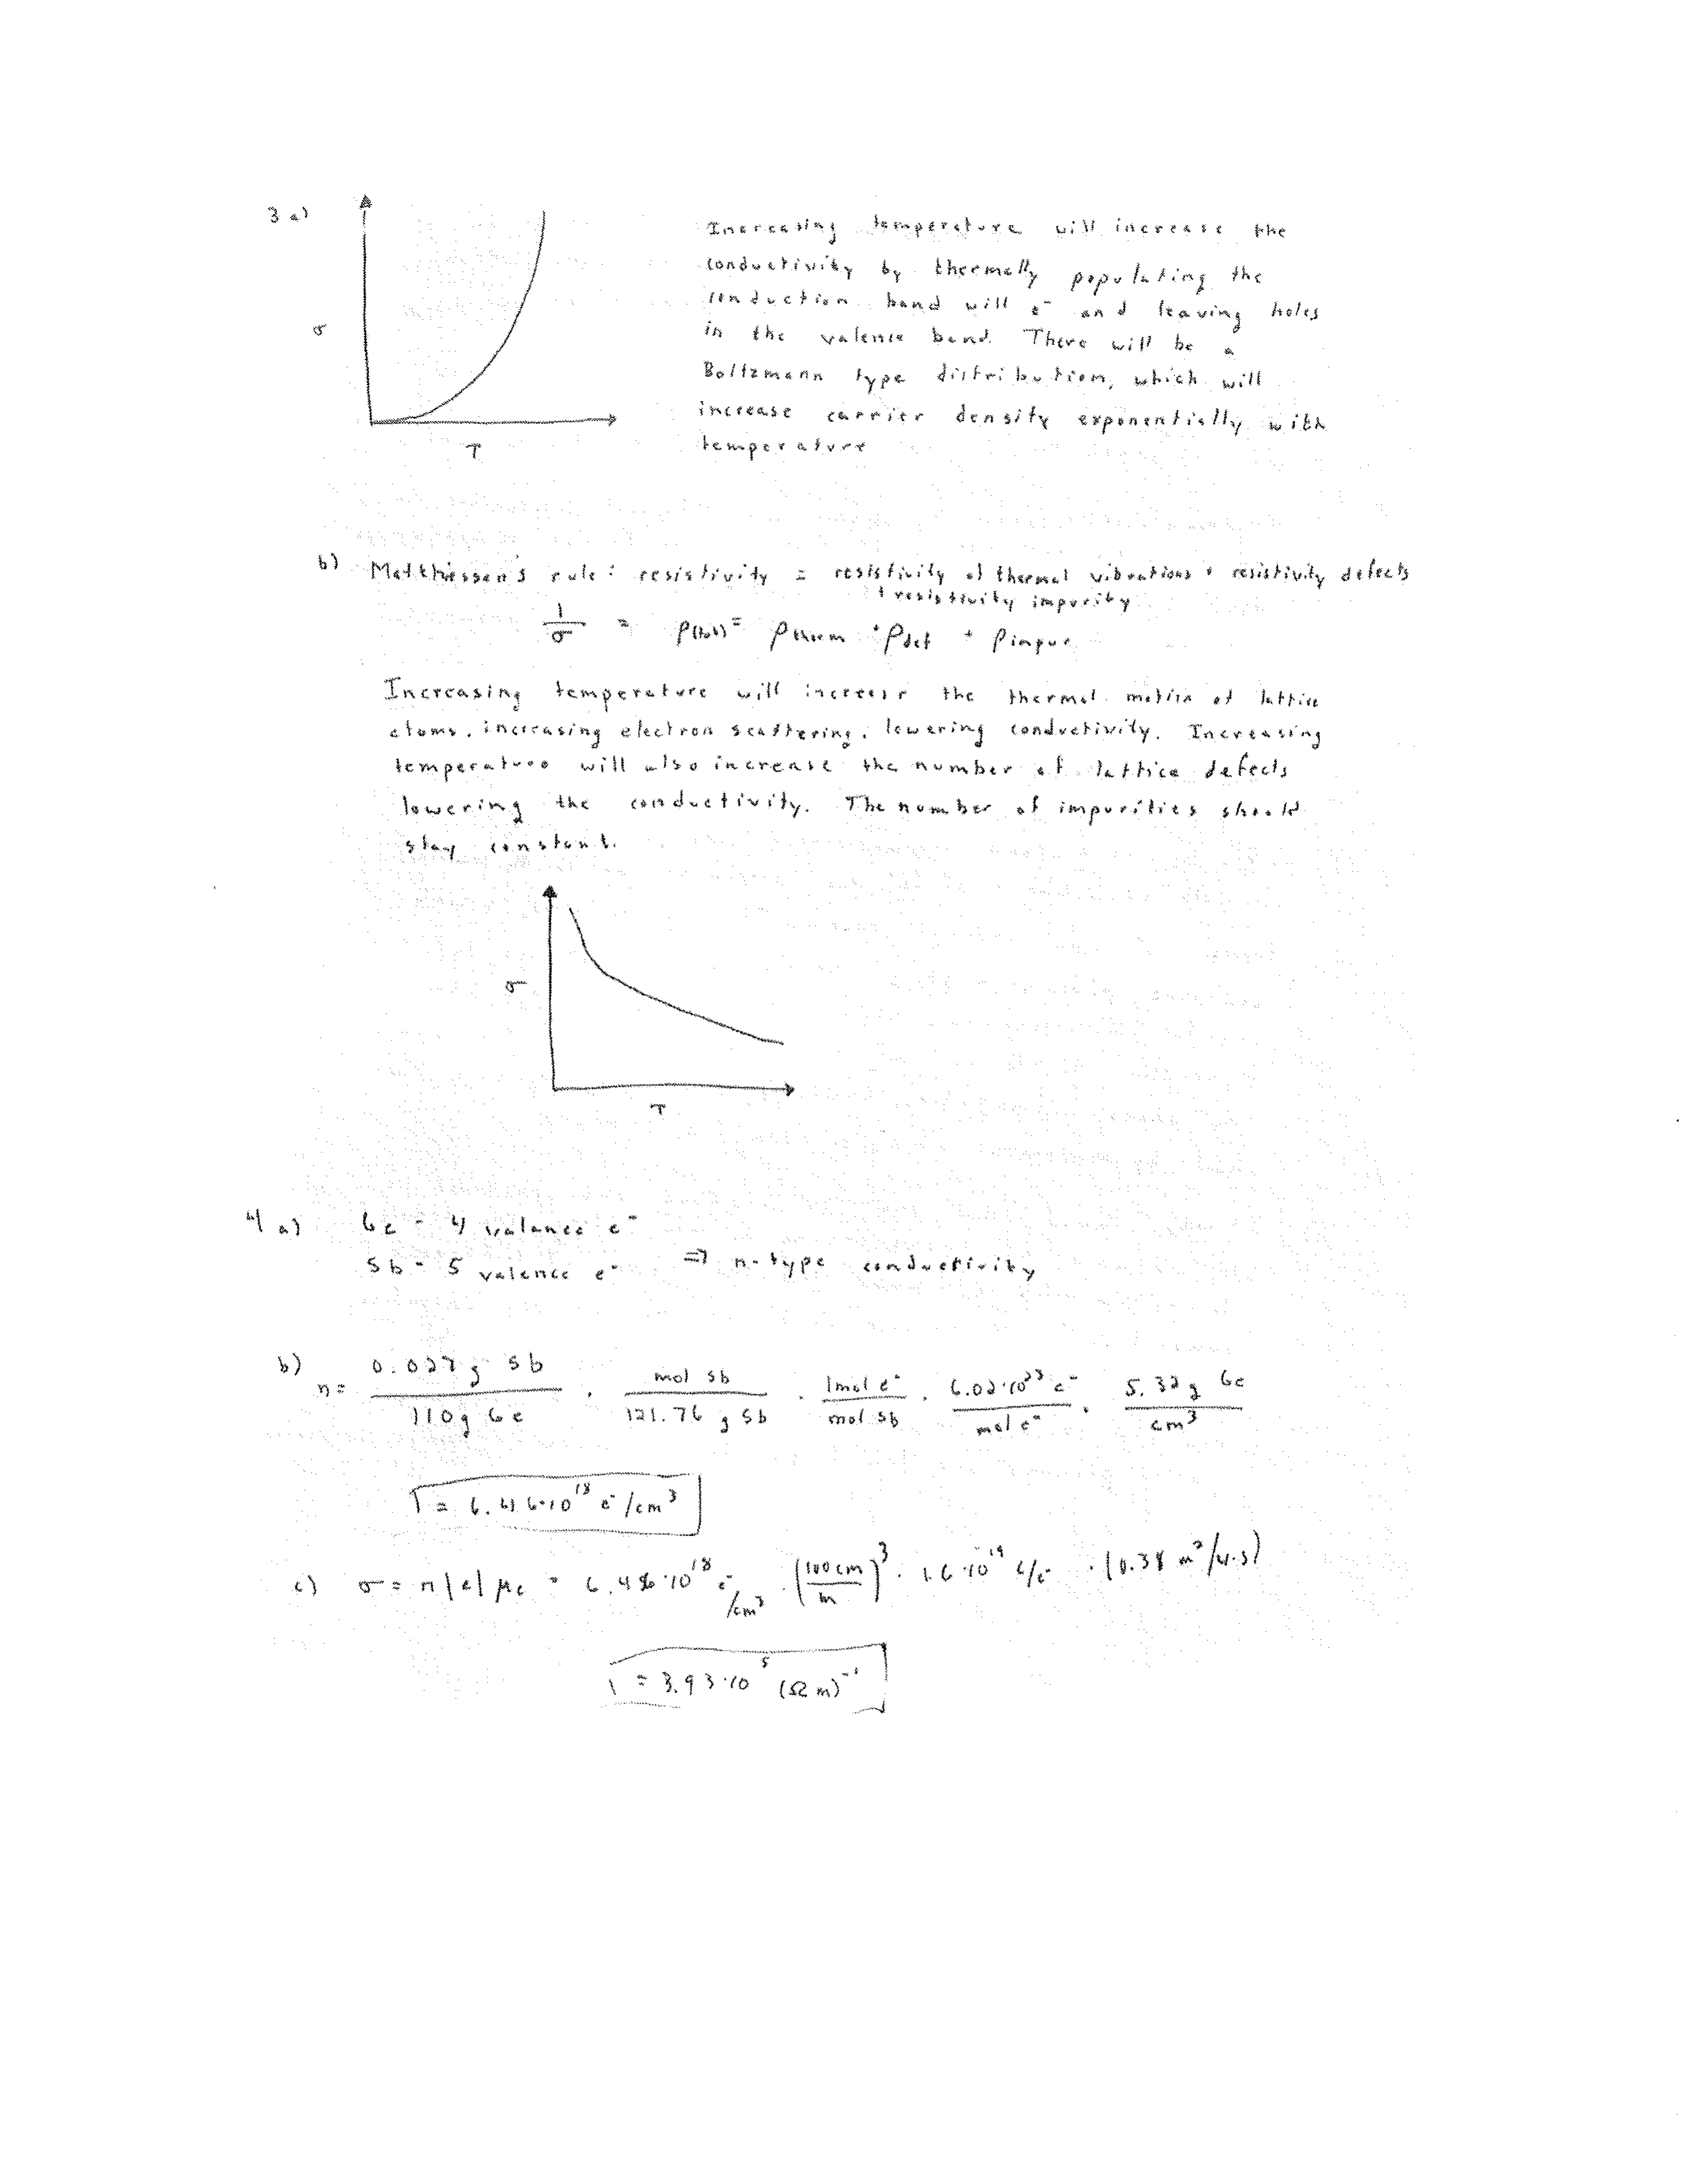 3 a)
σ
T
Increasing temperature will increase the
conductivity by thermally populating the
conduction band will e⁻ and leaving holes
in the valence band. There will be a
Boltzmann type distribution, which will
increase carrier density exponentially with
temperature
b) Matthiessen's rule: resistivity = resistivity of thermal vibrations + resistivity defects
+ resistivity impurity
1/σ = ρ(tot) = ρtherm + ρdef + ρimpur
Increasing temperature will increase the thermal motion of lattice
atoms, increasing electron scattering, lowering conductivity. Increasing
temperature will also increase the number of lattice defects
lowering the conductivity. The number of impurities should
stay constant.
σ
T
4 a) Ge - 4 valance e⁻
Sb - 5 valence e⁻ ⇒ n-type conductivity
b) n = 0.027 g Sb / 110 g Ge · mol Sb / 121.76 g Sb · 1 mol e⁻ / mol Sb · 6.02·10²³ e⁻ / mol e⁻ · 5.32 g Ge / cm³
= 6.46·10¹⁸ e⁻/cm³
c) σ = n|e|μe = 6.46·10¹⁸ e⁻/cm³ · (100 cm / m)³ · 1.6·10⁻¹⁹ C/e⁻ · (0.38 m²/V·s)
= 3.93·10⁵ (Ω m)⁻¹